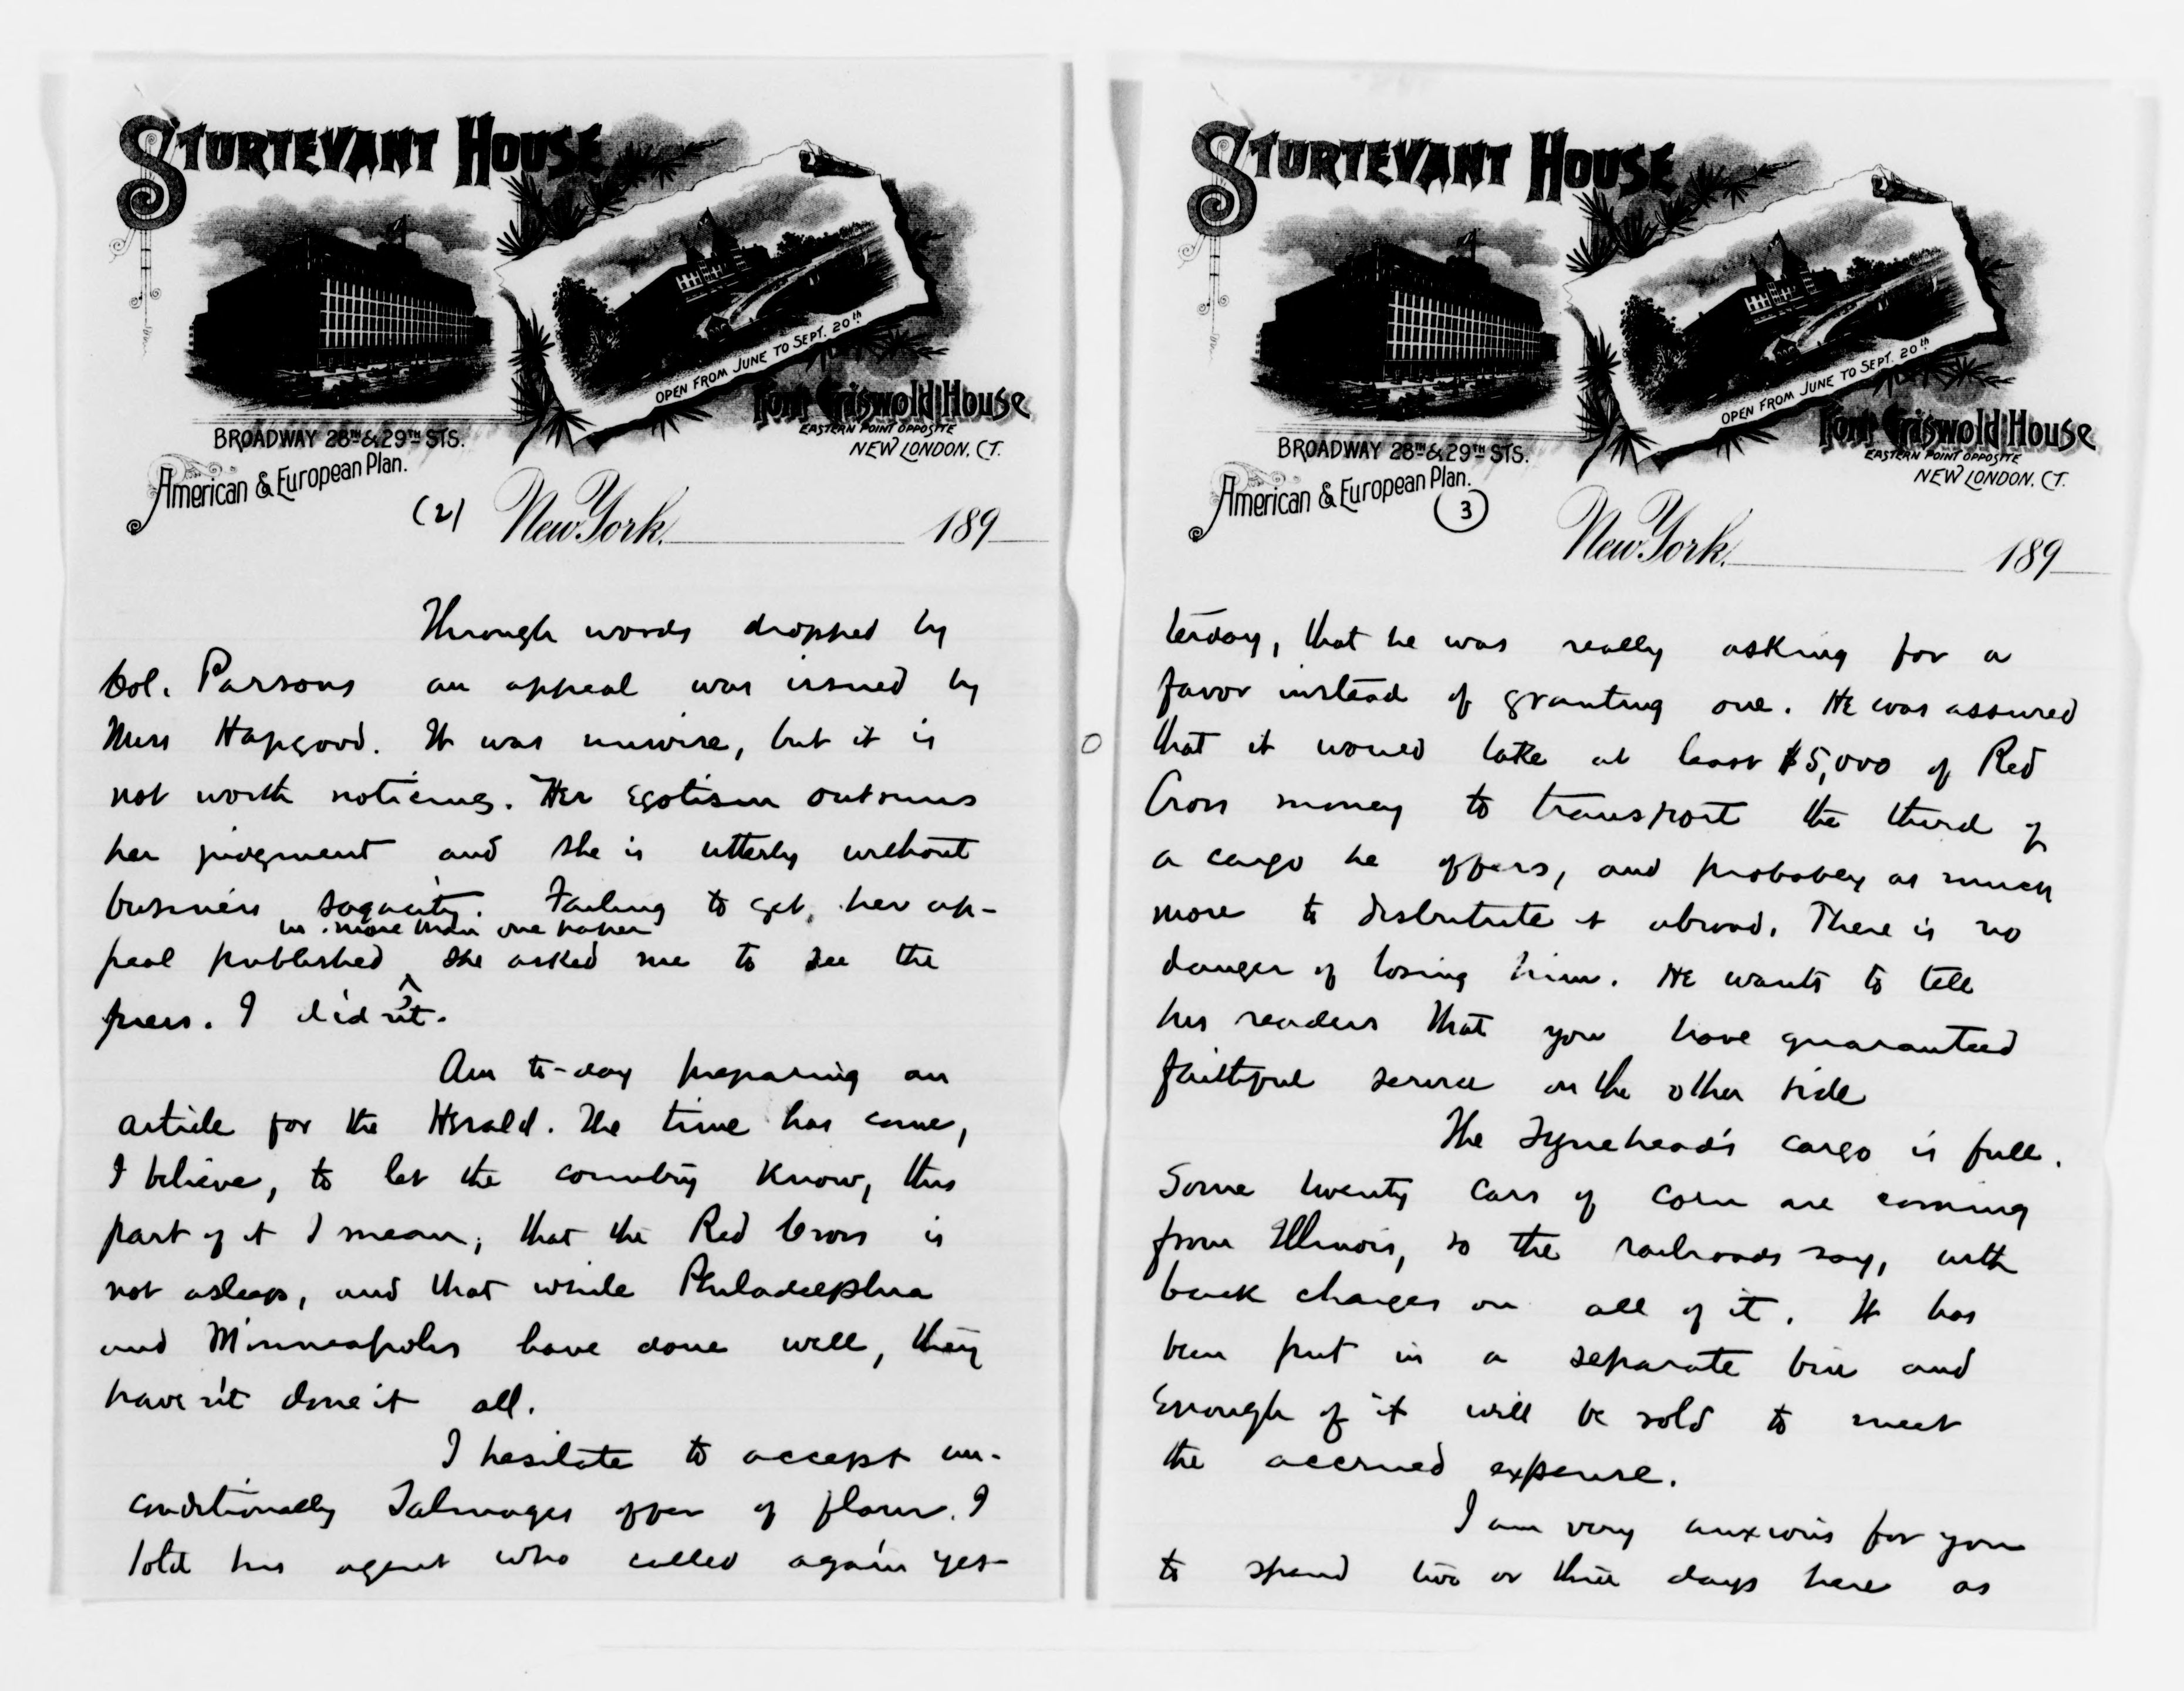 STURTEVANT HOUSE
OPEN FROM JUNE TO SEPT. 20th
Fort Griswold House
EASTERN POINT OPPOSITE
NEW LONDON, CT.
BROADWAY 28TH & 29TH STS.
American & European Plan.
(2) New York. 189
Through words dropped by
Col. Parsons an appeal was issued by
Miss Hapgood. It was unwise, but it is
not worth noticing. Her egotism outruns
her judgment and she is utterly without
business sagacity. Failing to get her ap-
in more than one paper
peal published ^ she asked me to see the
press. I did n't.
Am to-day preparing an
article for the Herald. The time has come,
I believe, to let the country know, this
part of it I mean, that the Red Cross is
not asleep, and that while Philadelphia
and Minneapolis have done well, they
have n't done it all.
I hesitate to accept un-
conditionally Talmages offer of flour. I
told his agent who called again yes-
STURTEVANT HOUSE
OPEN FROM JUNE TO SEPT. 20th
Fort Griswold House
EASTERN POINT OPPOSITE
NEW LONDON, CT.
BROADWAY 28TH & 29TH STS.
American & European Plan.
3
New York. 189
terday, that he was really asking for a
favor instead of granting one. He was assured
that it would take at least $5,000 of Red
Cross money to transport the third of
a cargo he offers, and probably as much
more to distribute it abroad. There is no
danger of losing him. He wants to tell
his readers that you have guaranteed
faithful service on the other side
The Tynehead's cargo is full.
Some twenty cars of corn are coming
from Illinois, so the railroads say, with
back charges on all of it. It has
been put in a separate bin and
enough of it will be sold to meet
the accrued expense.
I am very anxious for you
to spend two or three days here as